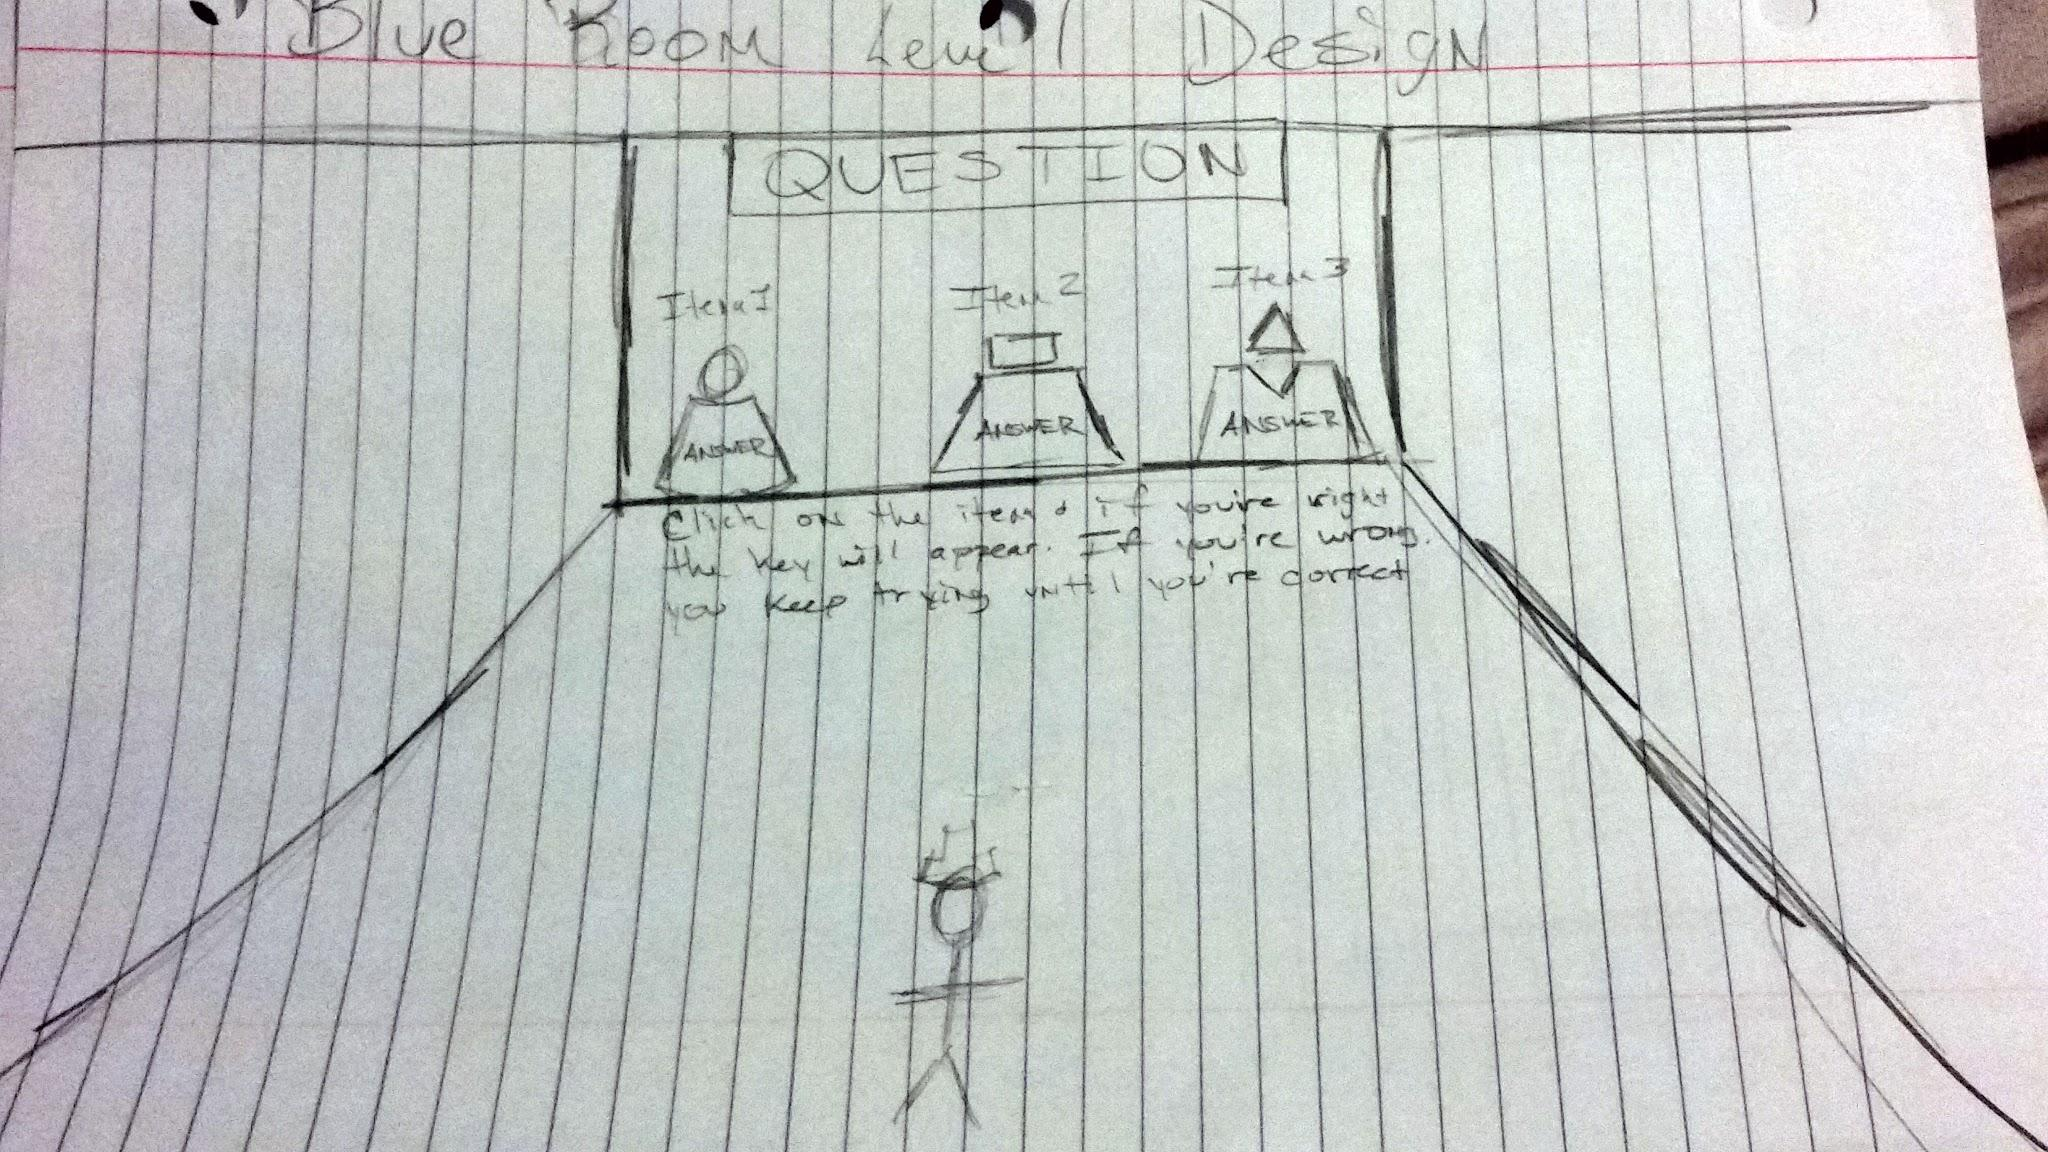 Blue Room Level Design
QUESTION
Item 1
Item 2
Item 3
ANSWER
ANSWER
ANSWER
Click on the item & if you're right
the key will appear. If you're wrong.
you keep trying until you're correct